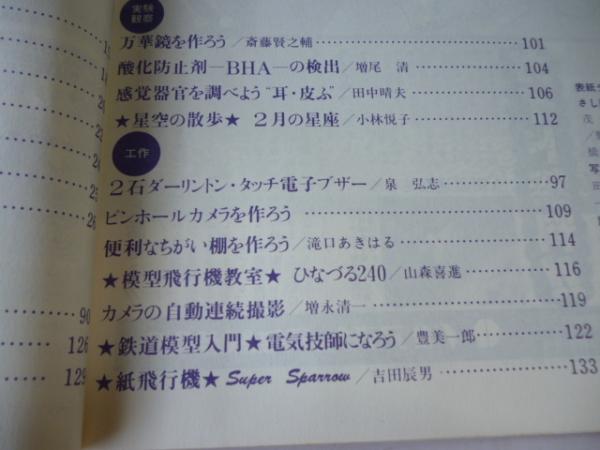 実験
観察
万華鏡を作ろう／斎藤賢之輔 101
酸化防止剤―BHA―の検出／増尾 清 104
感覚器官を調べよう“耳・皮ぷ”／田中晴夫 106
★星空の散歩★ 2月の星座／小林悦子 112
工作
2石ダーリントン・タッチ電子ブザー／泉 弘志 97
ピンホールカメラを作ろう 109
便利なちがい棚を作ろう／滝口あきはる 114
★模型飛行機教室★ ひなづる240／山森喜進 116
カメラの自動連続撮影／増永清一 119
★鉄道模型入門★電気技師になろう／豊美一郎 122
★紙飛行機★ Super Sparrow／吉田辰男 133
90
126
129
表紙
さし
茂
橋
写